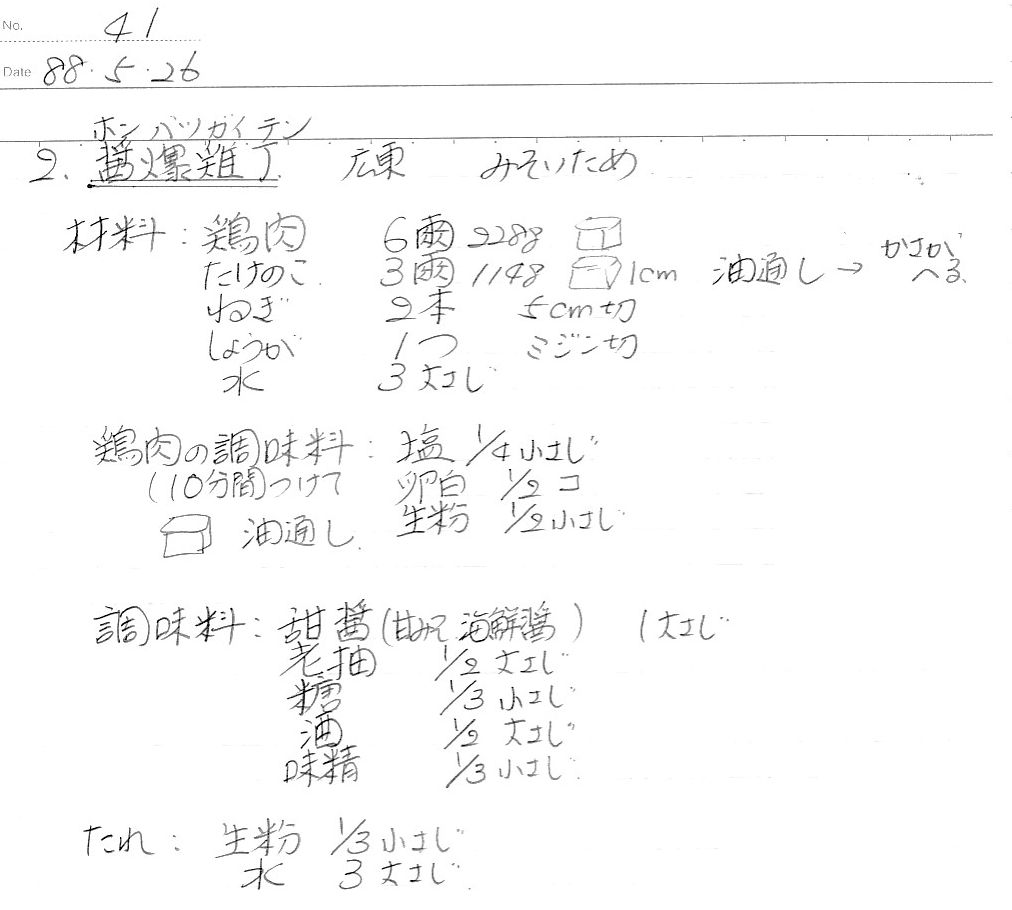 No. 41
Date 88・5・26
ホンバツガイテン
2. 醤爆雞丁 広東 みそいため
材料: 鶏肉 6両 228g
たけのこ 3両 114g 1cm 油通し→ かさがへる
ねぎ 2本 5cm切
しょうが 1つ ミジン切
水 3大さじ
鶏肉の調味料: 塩 1/4小さじ
(10分間)つけて 卵白 1/2コ
油通し 生粉 1/2小さじ
調味料: 甜醤(甘みそ 海鮮醤) 1大さじ
老抽 1/2大さじ
糖 1/3小さじ
酒 1/2大さじ
味精 1/3小さじ
たれ: 生粉 1/3小さじ
水 3大さじ